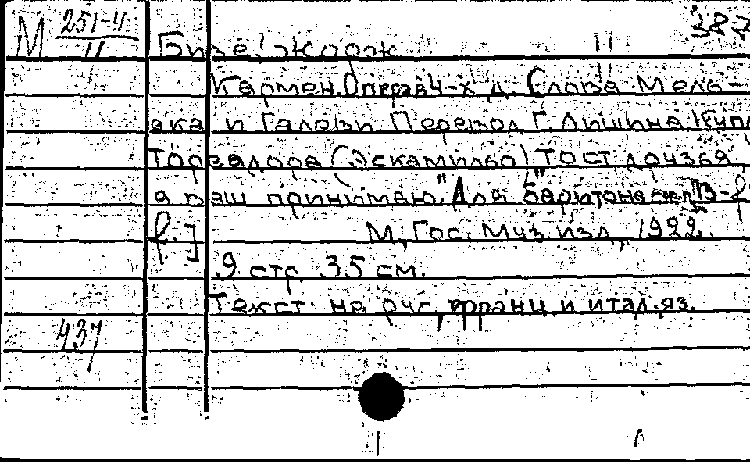 М 251-4
11
Бизе, Жорж
Кармен. Опера в 4-х д. Слова Мель-
яка и Галеви Перевод Г. Лишина. [Купл.
Тореадора (Эскамильо) "Тост, друзья,
я ваш принимаю." Для баритона с ф-
п.]
М., Гос. Муз. изд.,
9 стр. 35 см.
Текст: на рус., франц. и итал. яз.
437